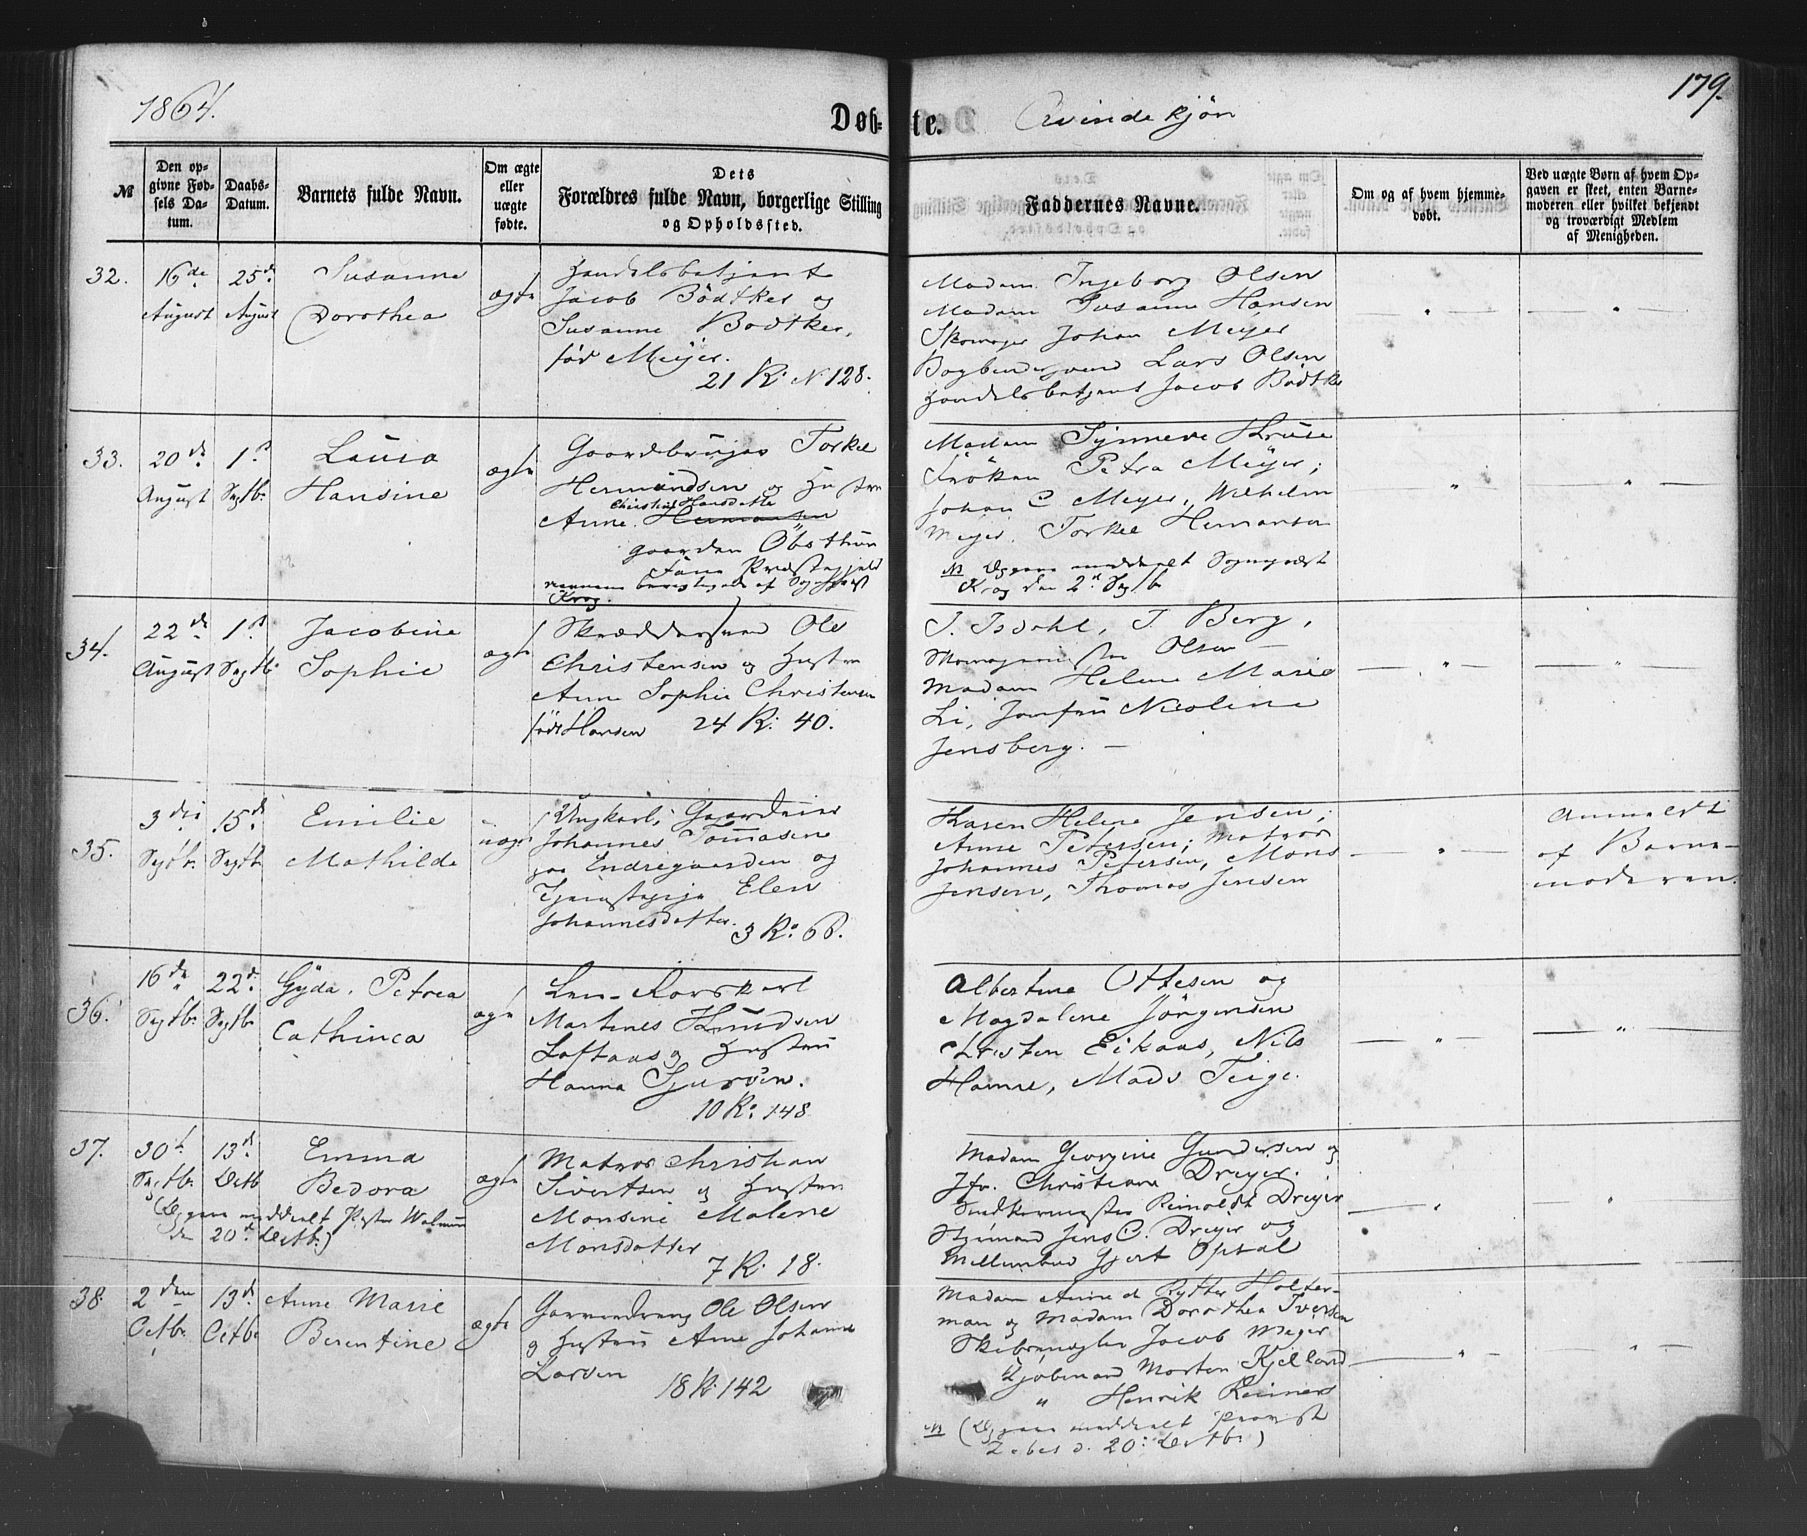 1864.
Døb-te. Qvindekjøn
179.
№
Den opgivne Fødsels Datum.
Daabs-Datum.
Barnets fulde Navn.
Om ægte eller uægte fødte.
Dets Forældres fulde Navn, borgerlige Stilling og Opholdssted.
Faddernes Navne.
Om og af hvem hjemmedøbt.
Ved uægte Børn af hvem Opgaven er skeet, enten Barnemoderen eller hvilket bekjendt og troværdigt Medlem af Menigheden.
32.
16de August
25de August
Susanne
Dorothea
ægte
Handelsbetjent
Jacob Bödtker og
Susanne Bödtker,
fød Meyer.
21 R: N 128.
Madam Ingeborg Olsen
Madam Susanne Hansen
Skomager Johan Meyer
Bogbindersvend Lars Olsen
Handelsbetjent Jacob Bödtker
33.
20de August
1st Septb.
Laura
Hansine
ægte
Gaardbruger Torkel
Hermundsen og Hustru
Christine Hansdatter
Anne Hermansen
gaarden Öbsthun
Fane Præstegjeld
navnene berigtigede af Sognepræst
Krog.
Madam Synneve Kruse
Fröken Petra Meyer;
Johan C Meyer, Wilhelm
Meyer, Torkel Hermansen
NB Opgave meddeelt Sognepræst
Krog den 2d Septb
34.
22de August
1st Septb.
Jacobine
Sophie
ægte
Skræddersvend Ole
Christensen og Hustru
Anne Sophie Christensen
född Hansen 24 R: 40.
J. Isdahl, J Berg,
Skomagermester Olsen
Madam Helene Marie
Li, Jomfru Nicoline
Jensberg. —
35.
3die Septb.
15de Septb.
Emilie
Mathilde
uægte
Ungkarl, Gaardeier
Johannes Tomasen
paa Endregaarden og
Tjenestepige Elen
Johannesdatter. 3 R: 66.
Karen Helene Jensen;
Anne Petersen; Matros
Johannes Petersen, Mons
Jensen, Thomas Jensen
Anmeldt
af Barne-
moderen.
36.
16de Septb.
22d. Septb.
Gyda. Petrea
Cathinca
ægte
Leie-Rorskarl
Martines Knudsen
Loftaas og Hustru
Hanna Sjursen.
10 R: 148
Albertine Ottesen og
Magdalene Jörgensen
Christen Eikaas, Nils
Hamre, Mads Teige.
37.
30t Septb.
13d Octb
Emma
Bedora
(Opgave meddeelt Pastor Walnum
den 20de Octb.)
ægte
Matros Christian
Sivertsen og Hustru
Monsine Malene
Monsdatter
7 R: 18.
Madam Georgine Gundersen og
Jfr. Christiane Dreyer.
Reinoldt Dreyer
Styrmand Jens C. Dreyer og
Gjert Opdal
38.
2den Octb.
13d Octb.
Anne Marie
Berentine
ægte
Ole Olsen
og Hustru Ane Johanne
Larsen
18 R: 142
Madam Anne d Rytter Holter-
man og Madam Dorothea Iversen
Skibsmægler Jacob Meyer
Kjöbmand Morten Kjelland
" Henrik Reimers
NB (Opgave meddeelt Provst
d. 20: Octb.)